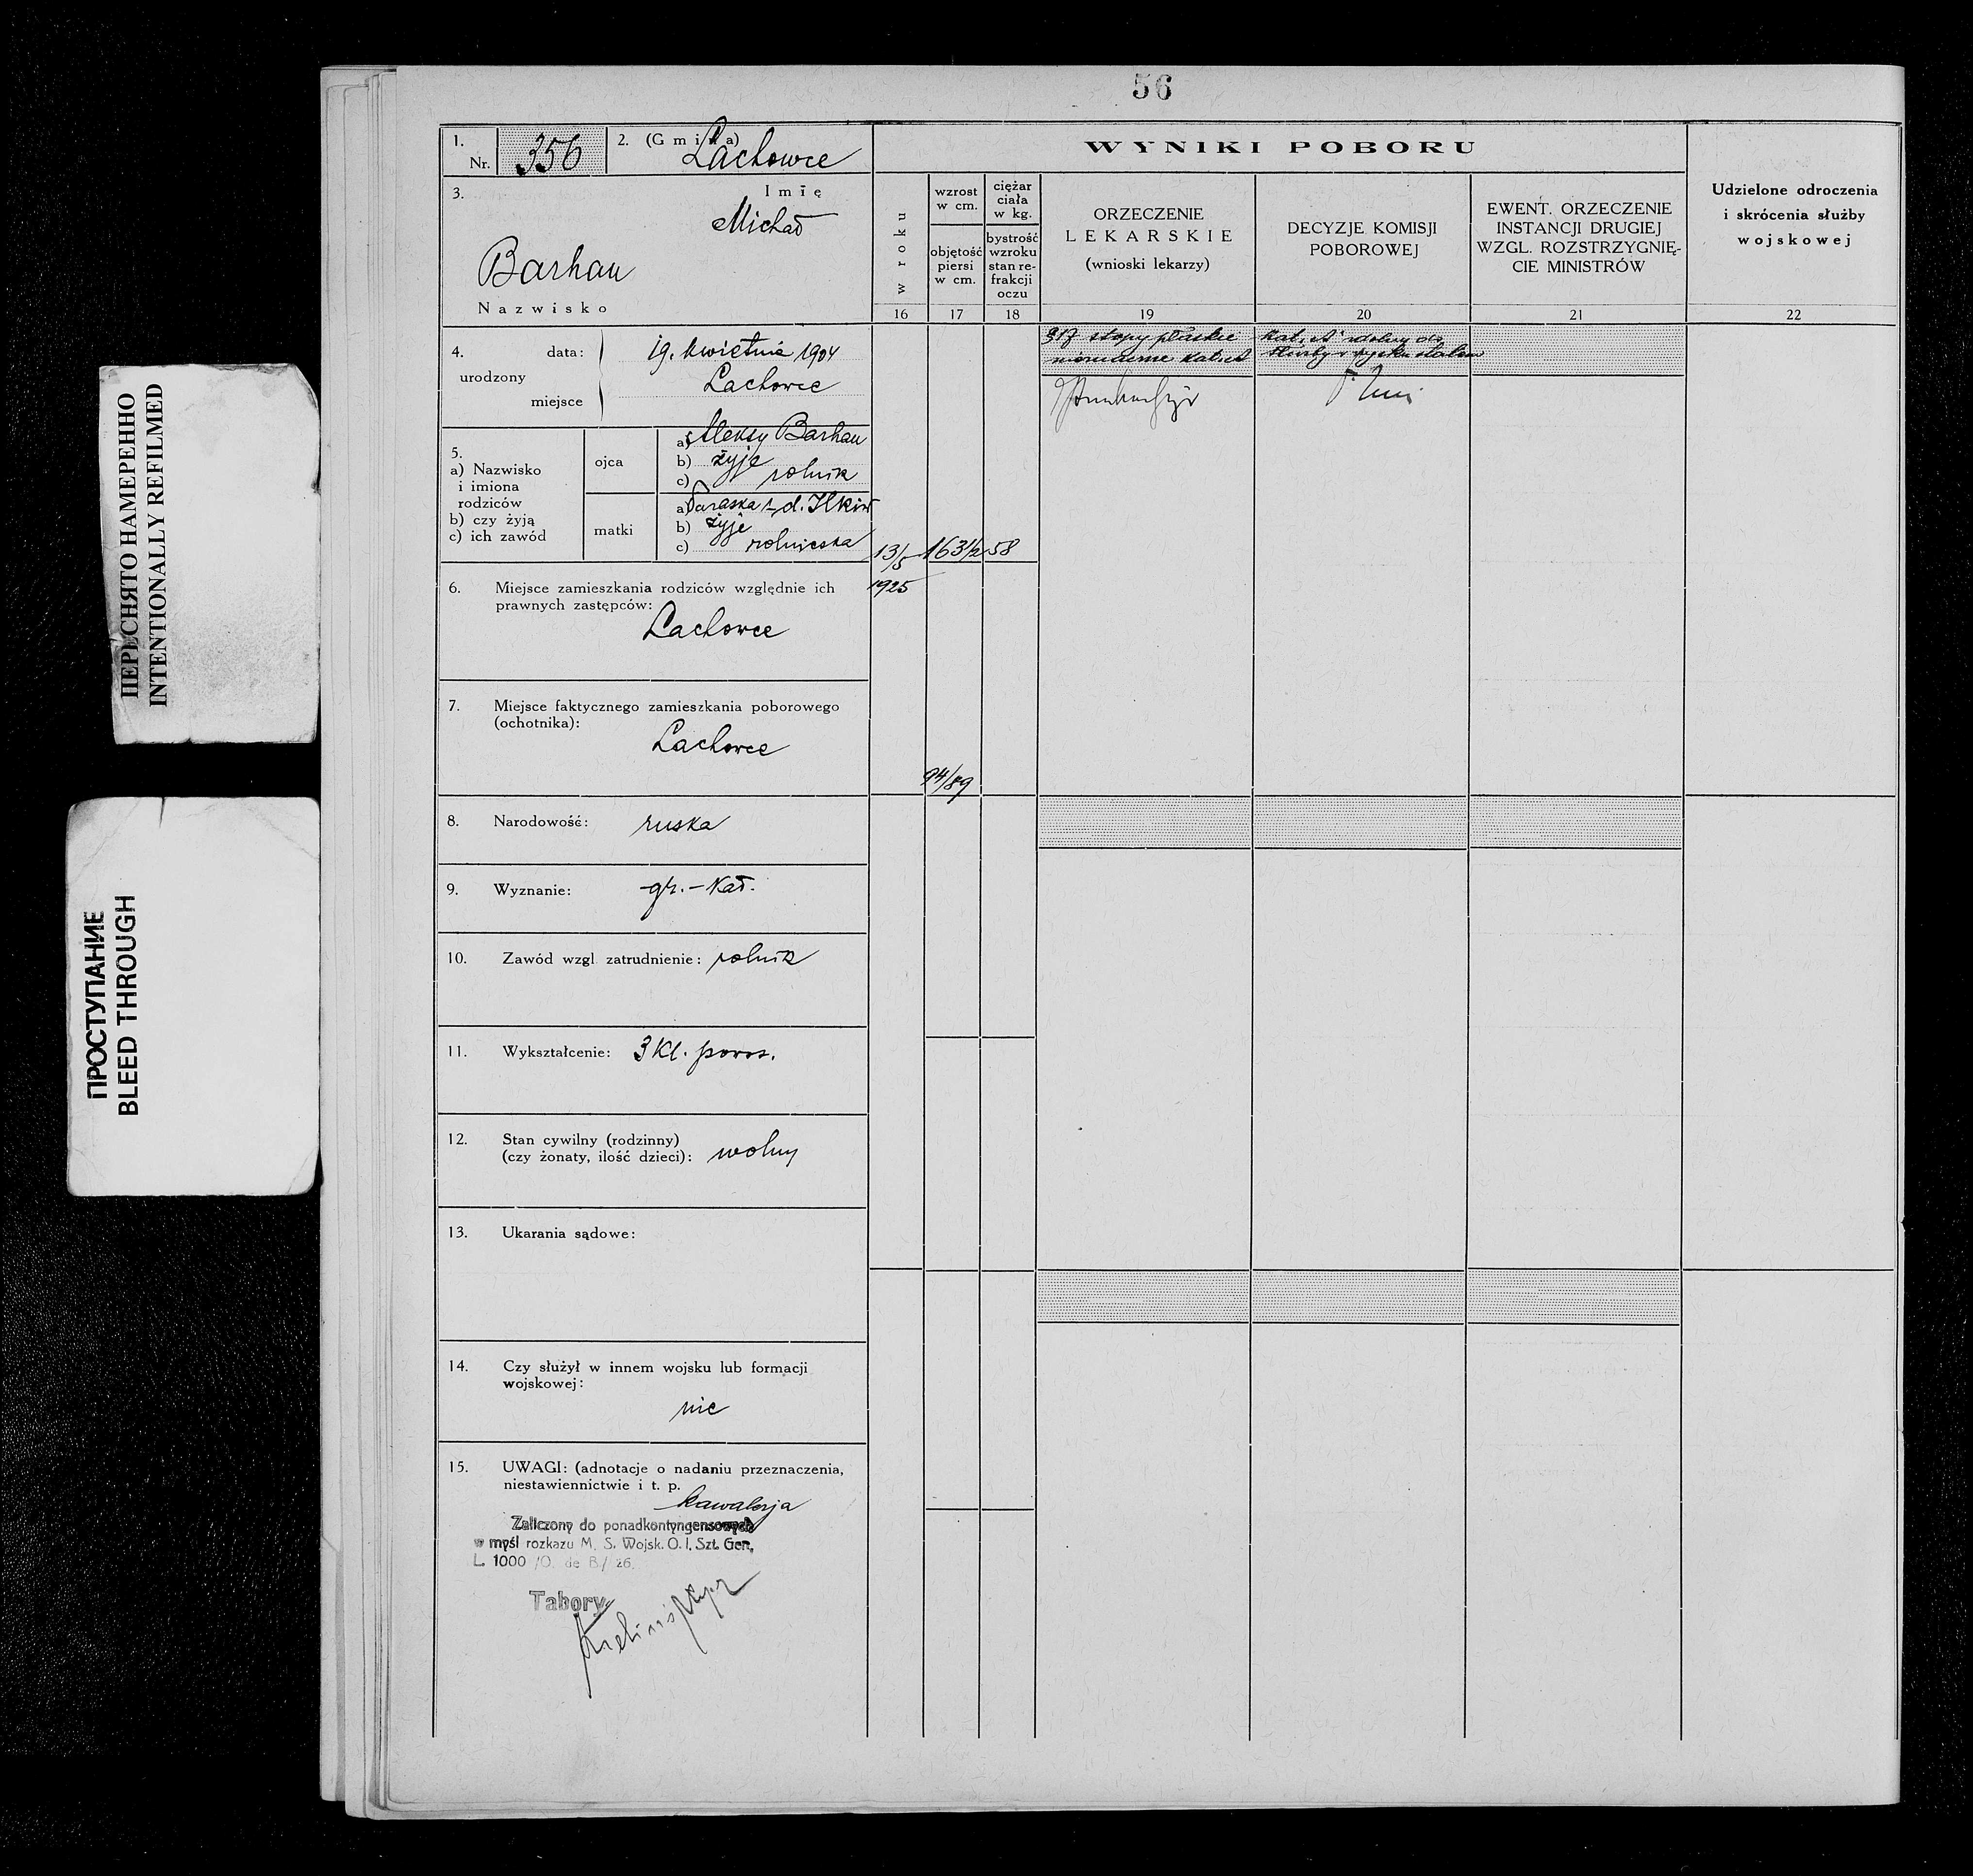 56
1. Nr. 356
2. (Gmina) Lachowce
3. Imię
Michał
Barhau
Nazwisko
4. urodzony
data: 19. kwietnia 1904
miejsce Lachowce
5.
a) Nazwisko
i imiona
rodziców
b) czy żyją
c) ich zawód
ojca
a) Aleksy Barhau
b) żyje
c) rolnik
matki
a) Paraska z d. Ilków
b) żyje
c) rolniczka
6. Miejsce zamieszkania rodziców względnie ich
prawnych zastępców:
Lachowce
7. Miejsce faktycznego zamieszkania poborowego
(ochotnika):
Lachowce
8. Narodowość: ruska
9. Wyznanie: gr.-kat.
10. Zawód wzgl. zatrudnienie: rolnik
11. Wykształcenie: 3 kl. pows.
12. Stan cywilny (rodzinny)
(czy żonaty, ilość dzieci): wolny
13. Ukarania sądowe:
14. Czy służył w innem wojsku lub formacji
wojskowej:
nie
15. UWAGI: (adnotacje o nadaniu przeznaczenia,
niestawiennictwie i t. p.
kawalerja
Zaliczony do ponadkontyngensowych
w myśl rozkazu M. S. Wojsk. O. I. Szt. Gen.
L. 1000 /O. de B/ 26.
Tabory
WYNIKI POBORU
w roku
16
wzrost
w cm.
objętość
piersi
w cm.
17
ciężar
ciała
w kg.
bystrość
wzroku
stan re-
frakcji
oczu
18
ORZECZENIE
LEKARSKIE
(wnioski lekarzy)
19
DECYZJE KOMISJI
POBOROWEJ
20
EWENT. ORZECZENIE
INSTANCJI DRUGIEJ
WZGL. ROZSTRZYGNIĘ-
CIE MINISTRÓW
21
Udzielone odroczenia
i skrócenia służby
wojskowej
22
13/5 163½ 58
1925
94/89
§17 stopy płaskie
kat. A
kat. "A" zdolny do
służby
ПЕРЕСНЯТО НАМЕРЕННО
INTENTIONALLY REFILMED
ПРОСТУПАНИЕ
BLEED THROUGH